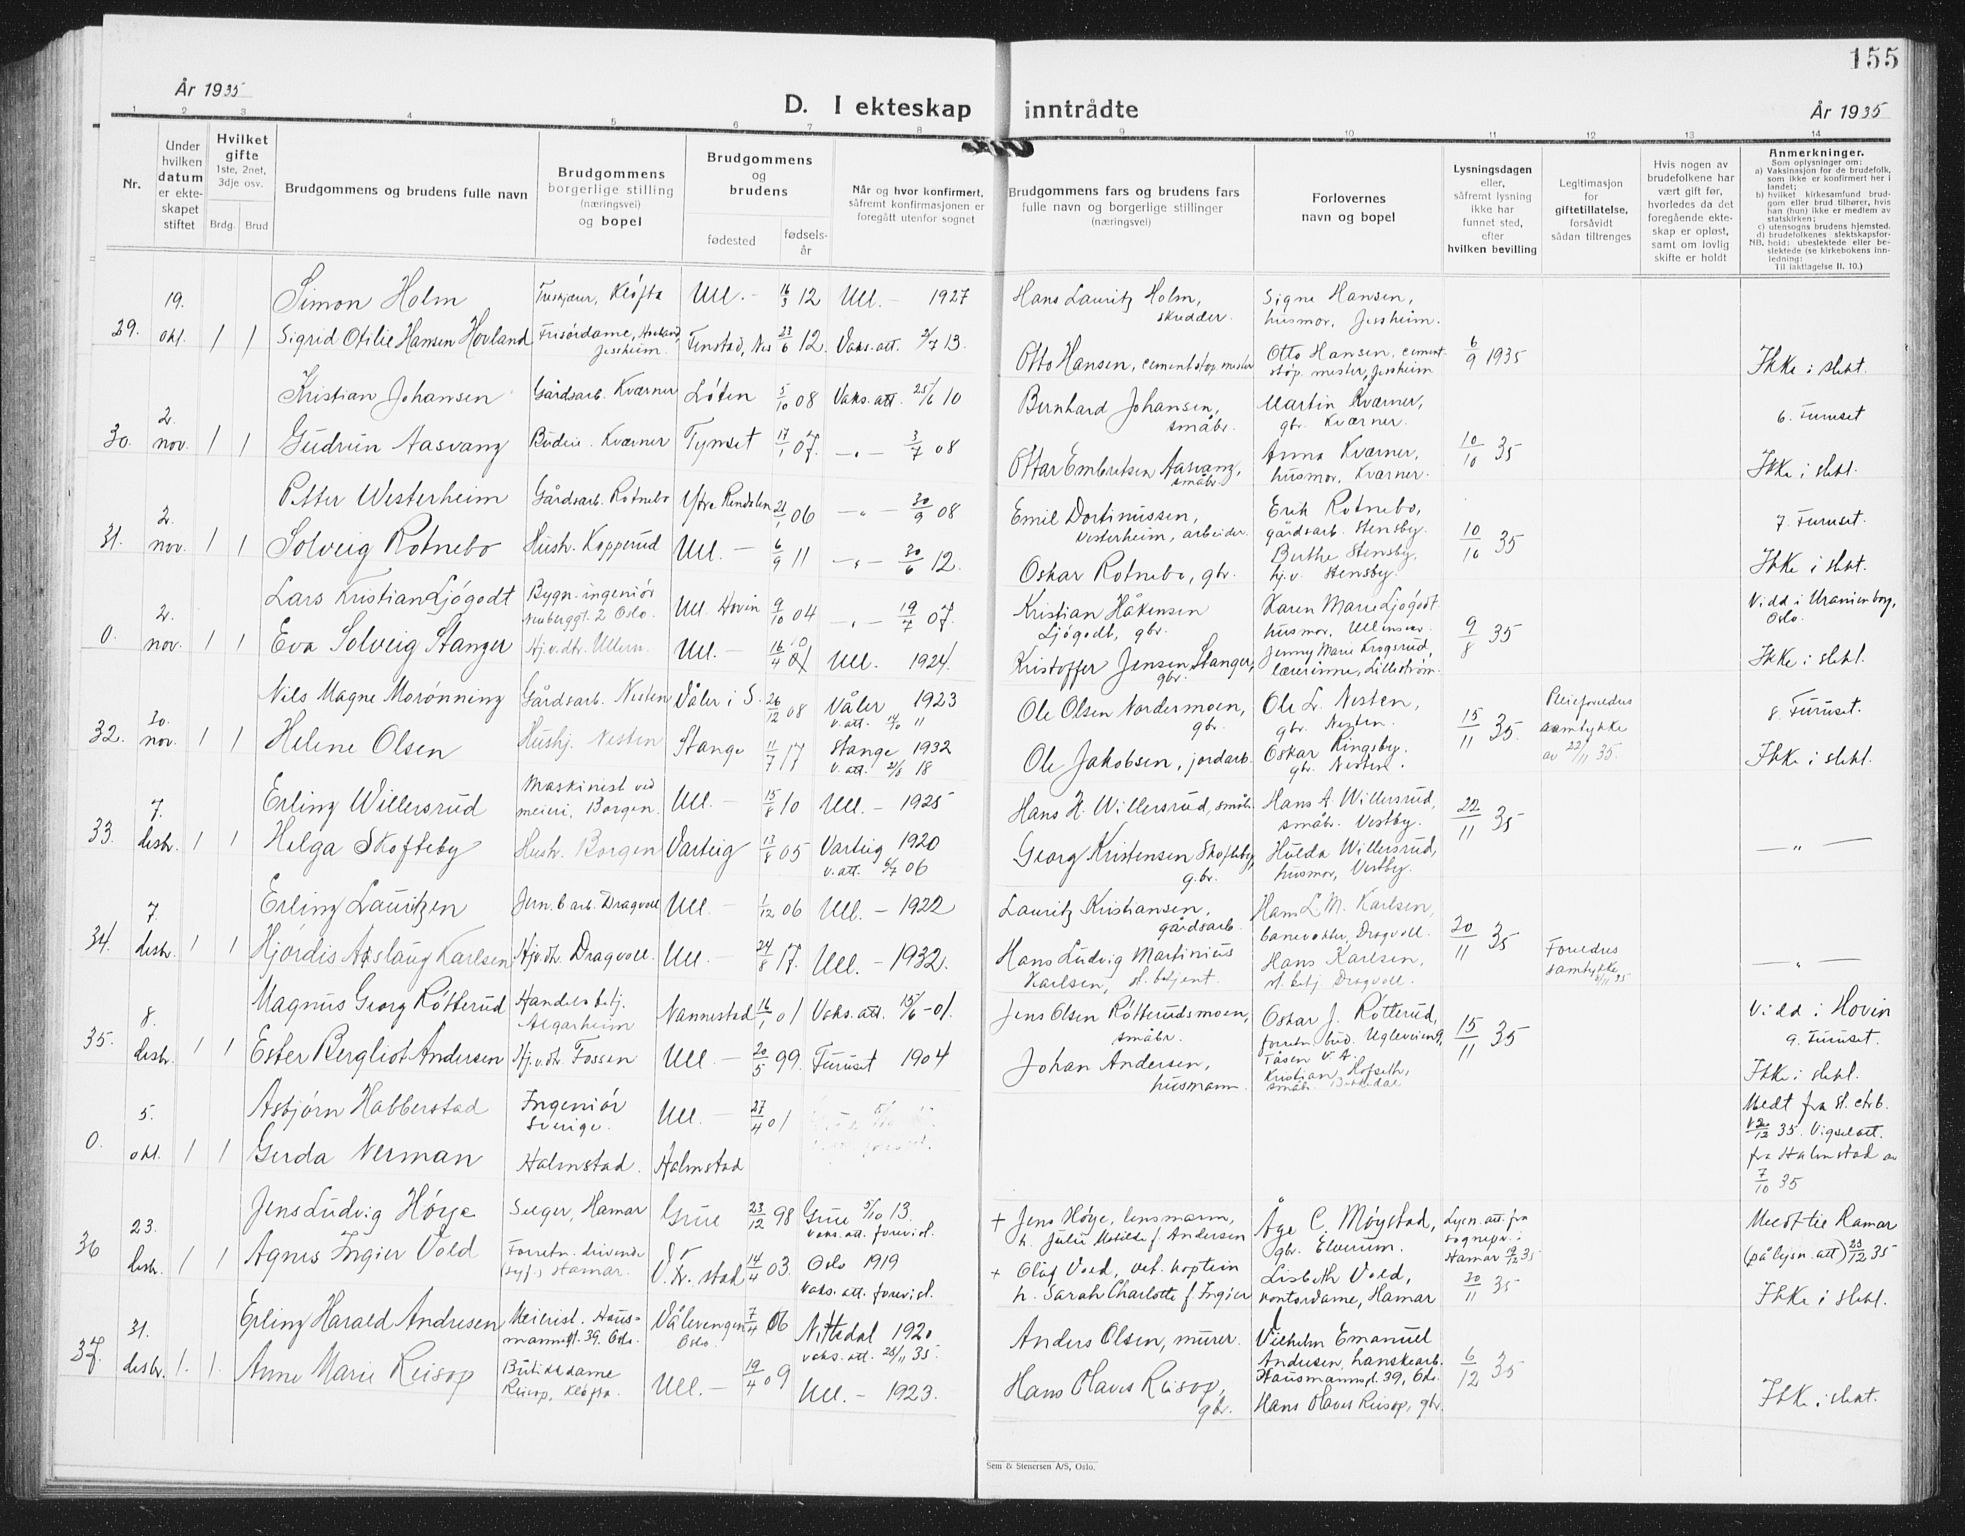 155
År 1935
D. I ekteskap inntrådte
År 1935
1 2 3 4 5 6 7 8 9 10 11 12 13 14
Nr.
Under hvilken datum er ekteskapet stiftet
Hvilket gifte 1ste, 2net, 3dje osv.
Brdg. Brud
Brudgommens og brudens fulle navn
Brudgommens borgerlige stilling (næringsvei) og bopel
Brudgommens og brudens
fødested
fødselsår
Når og hvor konfirmert, såfremt konfirmasjonen er foregått utenfor sognet
Brudgommens fars og brudens fars fulle navn og borgerlige stillinger (næringsvei)
Forlovernes navn og bopel
Lysningsdagen eller, såfremt lysning ikke har funnet sted, efter hvilken bevilling
Legitimasjon for giftetillatelse, forsåvidt sådan tiltrenges
Hvis nogen av brudefolkene har vært gift før, hvorledes da det foregående ekteskap er opløst, samt om lovlig skifte er holdt
Anmerkninger.
Som oplysninger om:
a) Vaksinasjon for de brudefolk, som ikke er konfirmert her i landet;
b) hvilket kirkesamfund brudgom eller brud tilhører, hvis han (hun) ikke er medlem av statskirken;
c) utensogns brudens hjemsted.
d) brudefolkenes slektskapsforhold: ubeslektede eller beslektede (se kirkebokens innledning:
NB. Til iakttagelse II. 10.)
29. 19. okt. 1 1
Simon Holm
Kløfta
Ull. – 16/3 12
Ull. – 1927
Hans Lauritz Holm, skredder.
Signe Hansen, husmor, Jessheim.
Sigrid Otilie Hansen Hovland
Frisørdame, Jessheim.
Tenstad, Nes 23/6 12
Vaks. att. 2/7 13.
Otto Hansen, cementstøp.mester
Otto Hansen, cementstøp.mester, Jessheim
6/9 1935
Ikke i slekt.
30. 2. nov. 1 1
Kristian Johansen
Gårdsarb. Kværner
Løten 5/10 08
Vaks. att. 25/6 10
Bernhard Johansen, småbr.
Martin Kværner, gbr. Kværner.
6. Furuset
Gudrun Aasvang
Budeie. Kværner
Tynset 17/1 07.
–„– 3/7 08
Ottar Embretsen Aasvang, småbr.
Anna Kværner, husmor, Kværner.
10/10 35
Ikke i slekt.
31. 2. nov. 1 1
Petter Westerheim
Gårdsarb. Rotnebo
Ytre Rendalen 21/1 06
–„– 30/9 08
Emil Dortinussen, Vesterheim, arbeider.
Erik Rotnebo, gårdsarb. Stensby.
7. Furuset.
Solveig Rotnebo
Hush. Kopperud
Ull. – 6/9 11
–„– 30/6 12.
Oskar Rotnebo, gbr.
Berthe Stensby, hj.v. Stensby.
10/10 35
Ikke i slekt.
0. 2. nov. 1 1
Lars Kristian Ljøgodt
Bygn.ingeniør Neuberggt. 2 Oslo.
Ull. Hovin 9/10 04
–„– 19/7 07.
Kristian Håkensen Ljøgodt, gbr.
Karen Marie Ljøgodt husmor, Ullensaker.
Vidd i Uranienborg, Oslo.
Eva Solveig Stanger
Hj.v.dtr. Ullern.
Ull. – 16/4
Ull. 1924.
Kristoffer Jensen Stanger, gbr.
Jenny Marie Krogsrud, lærerinne, Lillestrøm.
9/8 35
Ikke i slekt.
32. 30. nov. 1 1
Nils Magne Morønning
Gårdsarb. Nesten
Våler i S. 26/12 08
Våler 1923 v. att. 11
Ole Olsen Nordermoen, gbr.
Ole L. Nesten, gbr. Nesten.
Pleieforeldres samtykke av 22/11 35.
8. Furuset.
Helene Olsen
Hushj. Nesten
Stange 11/7 17
Stange 1932 v. att. 21/8 18
Ole Jakobsen, jordarb.
Oskar Ringsby. gbr. Nesten.
15/11 35.
Ikke i slekt.
33. 7. desbr. 1 1
Erling Willersrud
Maskinist ved meieri, Borgen.
Ull. – 15/8 10
Ull. – 1925
Hans H. Willersrud, småbr.
Hans A. Willersrud, småbr. Vestby.
22/11 35
Helga Skofteby
Hush. Borgen
Varteig 13/8 05
Varteig 1920 v. att. 6/7 06
Georg Kristensen Skofteby, g.br.
Hulda Willersrud, husmor, Vestby.
–„–
34. 7. desbr. 1 1
Erling Lauritzen
Jern.b.arb. Dragvoll
Ull. – 1/12 06
Ull. – 1922
Lauritz Kristiansen, gårdsarb.
Hans L. M. Karlsen, banevokter, Dragvoll.
20/11 35
Hjørdis Aslaug Karlsen
Hjv.dtr. Dragvoll.
Ull. – 24/8 17.
Ull. – 1932.
Hans Ludvig Martinius Karlsen, st. betjent.
Hans Karlsen, st. betj. Dragvoll.
Foreldres samtykke
–„–
35. 8. desbr. 1 1
Magnus Georg Røtterud
Handelsbetj. Algarheim
Nannestad 16/1 01
Vaks. att. 15/6 –01.
Jens Olsen Røtterudsmoen, småbr.
Oskar J. Røtterud, forretn. Ugleveien 9, Tåsen V. A.
15/11 35
Vidd i Hovin
9. Furuset.
Ester Bergliot Andersen
Hj.v.dtr. Fossen
Ull. – 20/5 99.
Furuset 1904
Johan Andersen, husmann.
Kristian Hofseth, småbr.
Ikke i slekt.
0. 5. okt. 1 1
Asbjørn Habberstad
Ingeniør Sverige.
Ull. – 27/4 01
Gerda Nerman
Halmstad.
Halmstad
Medt fra st. chrb. 35. Vigselatt. fra Halmstad av 7/10 35
36 23. desbr. 1 1
Jens Ludvig Høye
Selger, Hamar
Grue 23/12 98
Grue 5/10 13. vaks. att. forevist.
+ Jens Høye, lensmann, h. Julie Matilde f. Andersen
Åge C. Møystad, gbr. Elverum.
Lysn. att. fra sognepr. i Hamar 35
Medt til Hamar (på lysn. att) 23/12 35
Agnes Ingier Vold
Forretn. drivende (syf.) Hamar.
V. Tr. stad 14/4 03.
Oslo 1919 vaks. att. forevist.
+ Oluf Vold, vet. kaptein h. Sarah Charlotte f. Ingier
Lisbeth Vold, kontordame, Hamar
30/11 35
Ikke i slekt.
37. 31. desbr. 1. 1.
Erling Harald Andresen
Meierist. Hausmannsgt. 39. Oslo.
Vålerengen Oslo. 7/4 06
Nittedal 1920 vaks. att. 25/11 35.
Anders Olsen, murer.
Vilhelm Emanuel Andresen, hanskearb. Hausmannsgt. 39, Oslo.
Anne Marie Reisop
Butikkdame Reisop, Kløfta.
Ull. – 19/4 09
Ull. – 1923.
Hans Olaves Reisop, gbr.
Hans Olaves Reisop, gbr.
6/12 35
Ikke i slekt.
Sem & Stenersen A/S, Oslo.